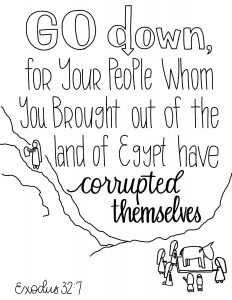 GO down,
for Your People Whom
You Brought out of the
land of Egypt have
corrupted
themselves
Exodus 32:7